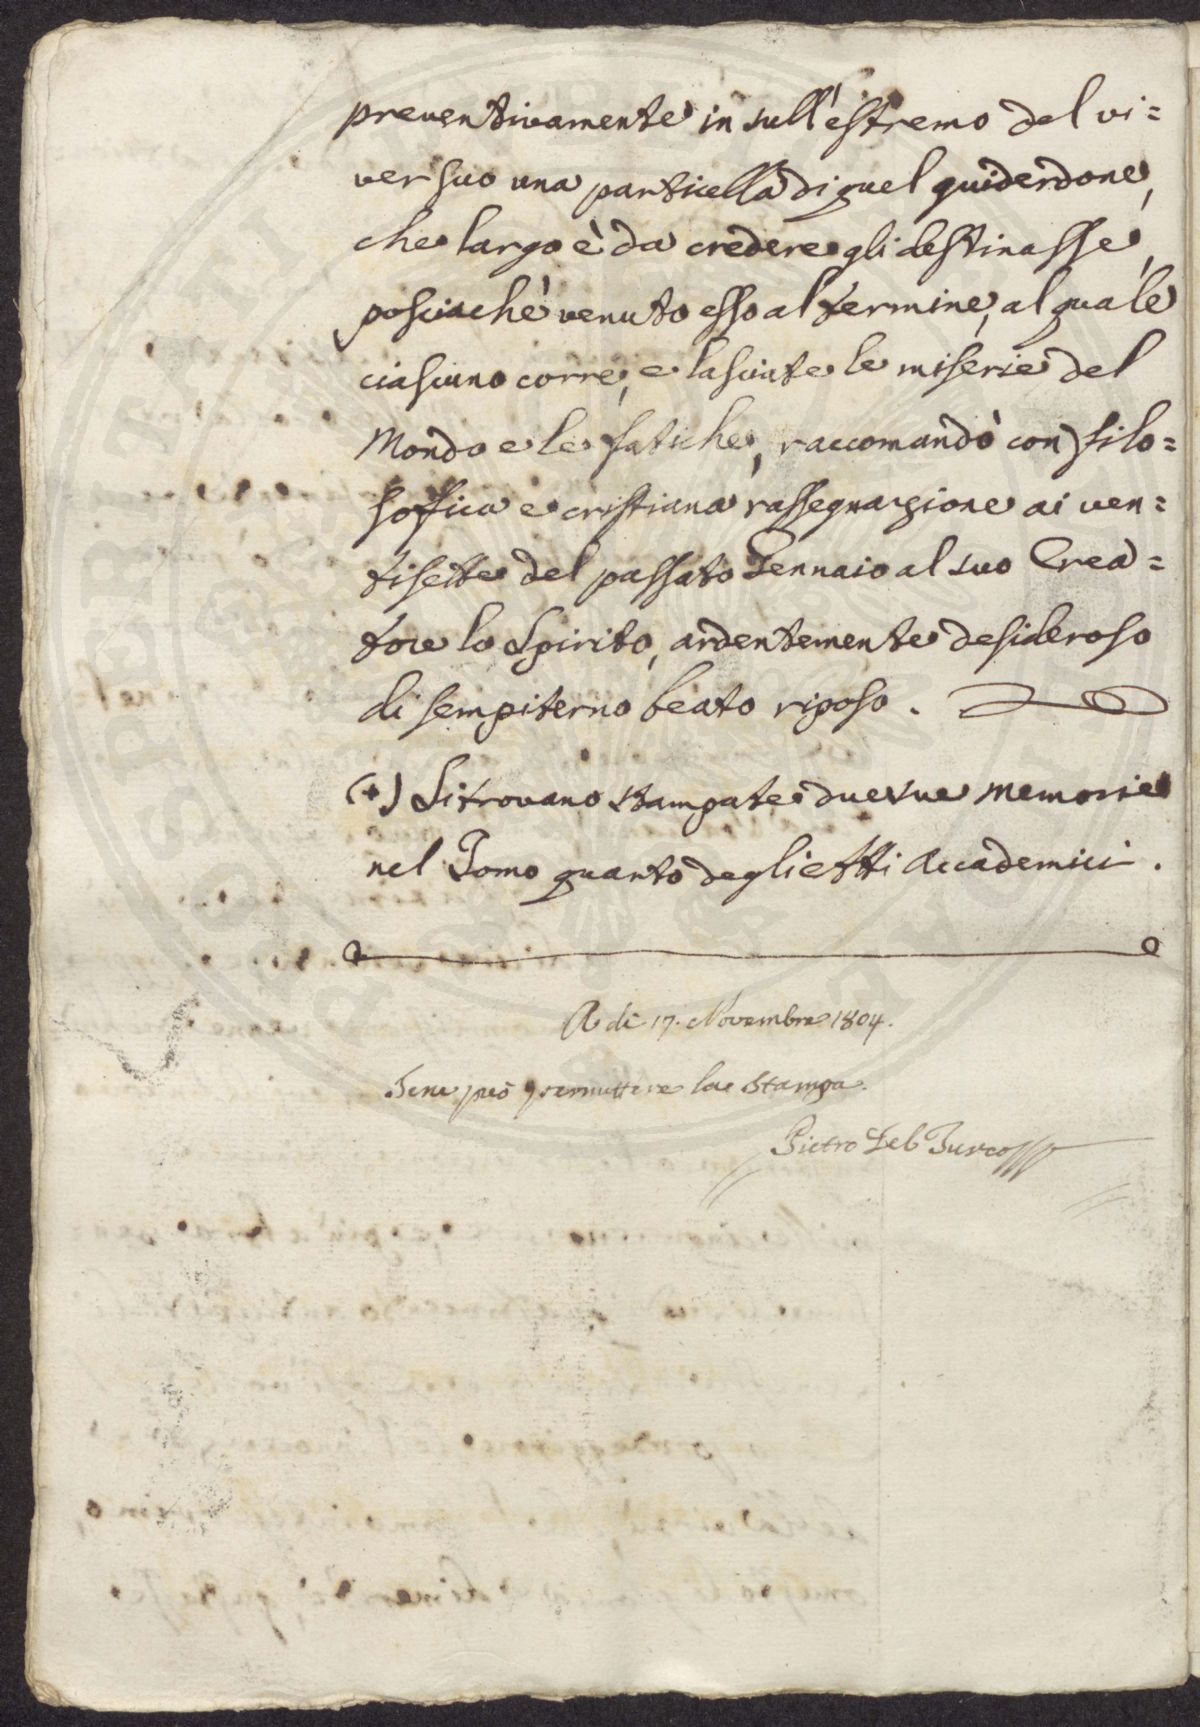 preventivamente in sull'estremo del vi=
ver suo una particella di quel guiderdone,
che largo è da credere gli destinasse,
posciachè venuto esso al termine, al quale
ciascuno corre, e lasciate le miserie del
Mondo e le fatiche, raccomandò con filo=
soffica e cristiana rassegnazione ai ven=
tisette del passato Gennaio al suo Crea=
tore lo Spirito, ardentemente desideroso
di sempiterno beato riposo.
(+) Si trovano stampate due sue memorie
nel Tomo quarto degli Atti Accademici.
A dì 17. Novembre 1804.
Se ne può permettere la Stampa.
Pietro Del Turco